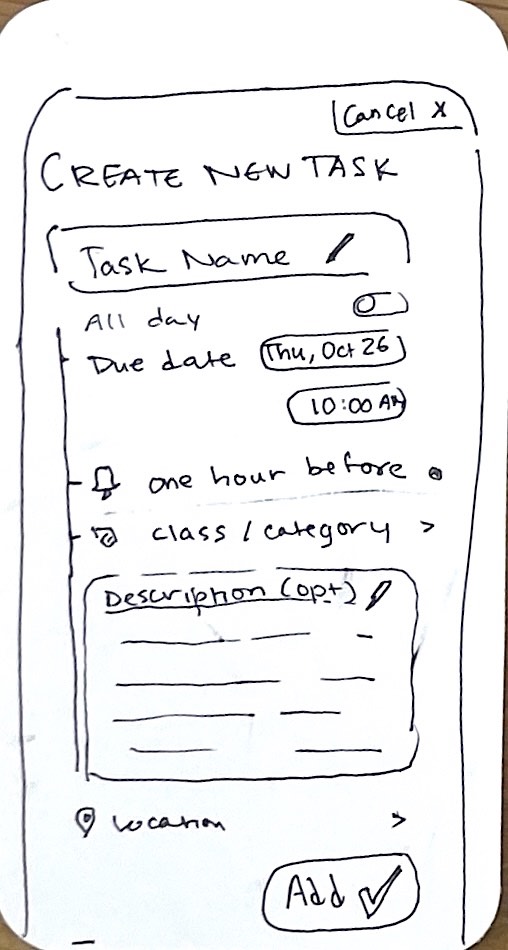 Cancel X
CREATE NEW TASK
Task Name
All day
Due date Thu, Oct 26
10:00 AM
one hour before
class / category >
Description (opt)
location >
Add ✓